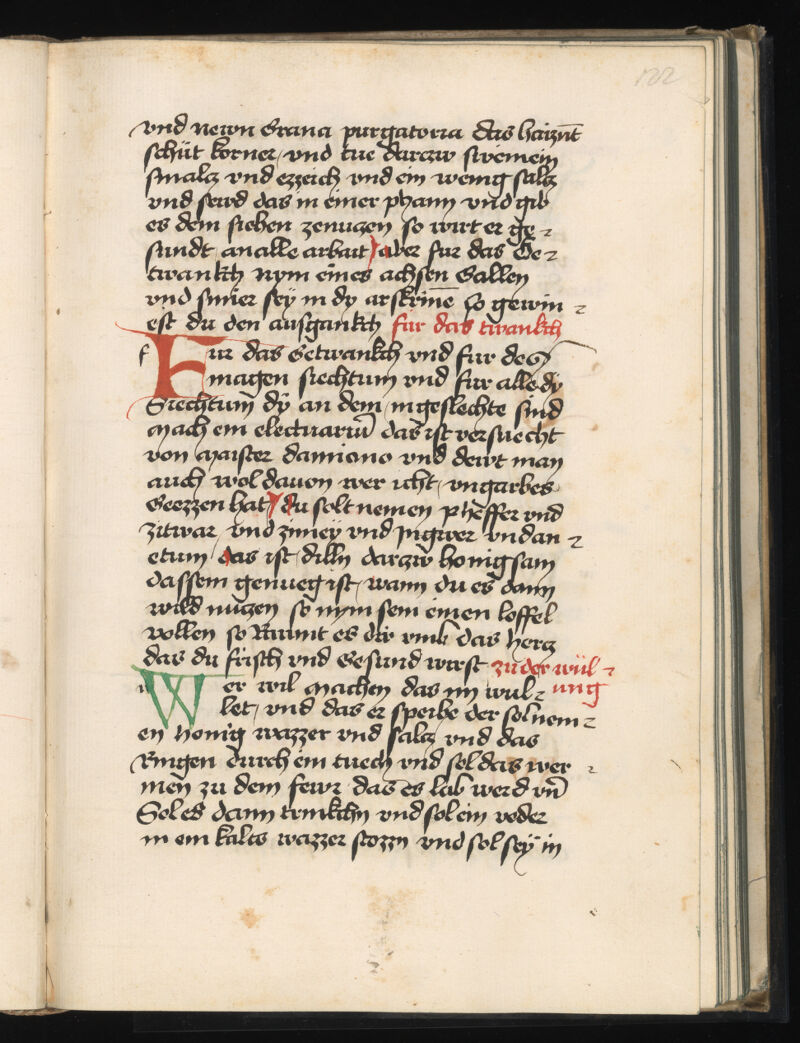 122
vnd newn Grana purgatoria das haiznt
schüt korner / vnd tue darczw swemein
smalcz vnd ezzeich vnd ein wenig salcz
vnd sewd das in einer phann vnd gib
es dem siechen zenuczen so wirt er ge⸗
sundt an alle arbait aber fur das Ge⸗
twankch Nym eines achsen Gallen
vnd smier sey in dy arskrine so gewin⸗
est du den ausgankch fur das twankch
f Fur das Getwankch vnd fur des
magen siechtum vnd fur alle dy
Siechtum dy an dem ingeslechte sind
Mach ein electuariu das ist versuecht
von Maister damiano vnd dewt man
auch wol dauon wer icht vngarbes
Geezzen hat du solt nemen pheffer vnd
zitwar vnd zimey vnd Ingwer vnd an⸗
etum das ist dilln darczw honigsam
dassem genueg ist / wann du es dann
wild nuczen so nym sein einen loffel
vollen so Raumt es dir vmb das hercz
das du frisch vnd Gesund wirst zu der wül⸗
ung
w Wer wil Machen das im wul⸗
let / vnd das er speibe der sol nem⸗
en honig wazzer vnd salcz vnd das
Ringen durch ein tuech vnd sol das wer⸗
men zu dem fewr das es lab werd vn
Sol es dann trinkchn vnd sol ein veder
in ein kalts wazzer stozzn vnd sol sey in